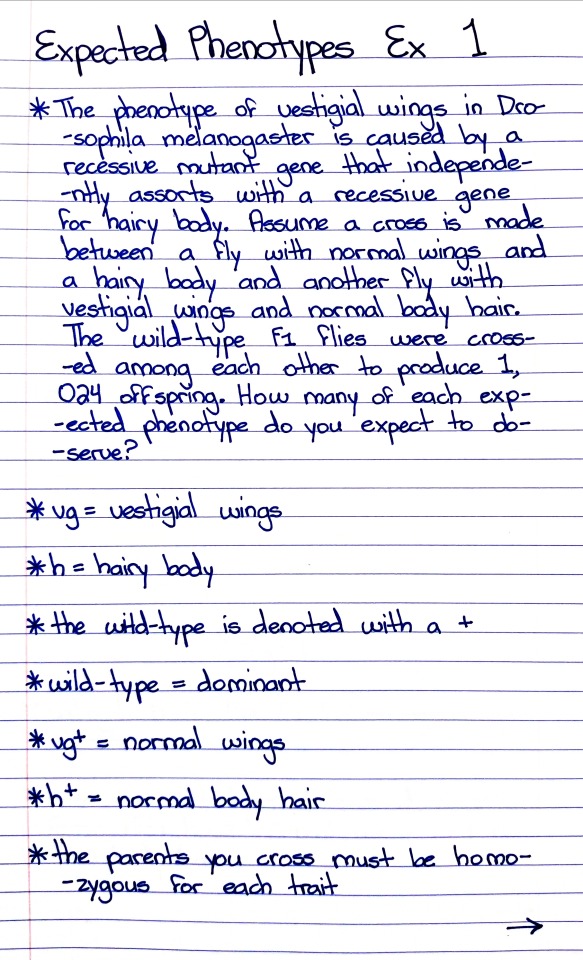 Expected Phenotypes Ex 1
* The phenotype of vestigial wings in Dro-
-sophila melanogaster is caused by a
recessive mutant gene that independe-
-ntly assorts with a recessive gene
for hairy body. Assume a cross is made
between a fly with normal wings and
a hairy body and another fly with
vestigial wings and normal body hair.
The wild-type F1 flies were cross-
-ed among each other to produce 1,
024 offspring. How many of each exp-
-ected phenotype do you expect to ob-
-serve?
* vg = vestigial wings
* h = hairy body
* the wild-type is denoted with a +
* wild-type = dominant
* vg+ = normal wings
* h+ = normal body hair
* the parents you cross must be homo-
-zygous for each trait
→